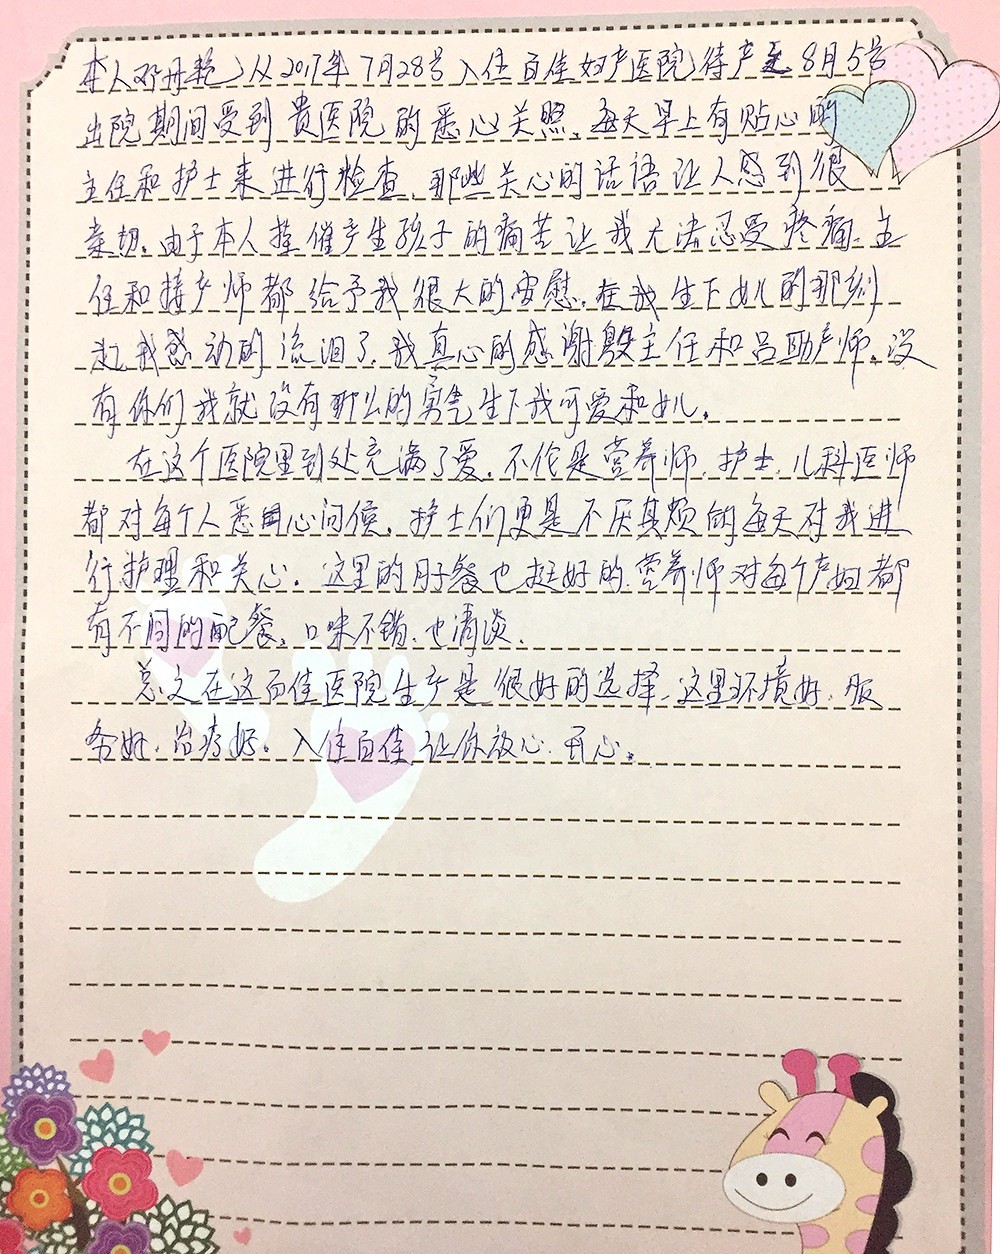 本人邓丹艳)从2017年7月28号入住百佳妇产医院待产至8月5号
出院期间受到贵医院的悉心关照。每天早上有贴心的
主任和护士来进行检查,那些关心的话语让人感到很
亲切。由于本人挂催产生孩子的痛苦让我无法忍受疼痛,主
任和接产师都给予我很大的安慰。在我生下女儿的那刻
起我感动的流泪了,我真心的感谢殷主任和吕助产师。没
有你们我就没有那么的勇气生下我可爱和女儿。
在这个医院里到处充满了爱,不伦是营养师,护士,儿科医师
都对每个人悉心问候,护士们更是不厌其烦的每天对我进
行护理和关心。这里的月子餐也挺好的,营养师对每个产妇都
有不同的配餐,口味不错,也清淡,
总之在这百佳医院生产是很好的选择,这里环境好,服
务好,治疗好。入住百佳,让你放心,开心。